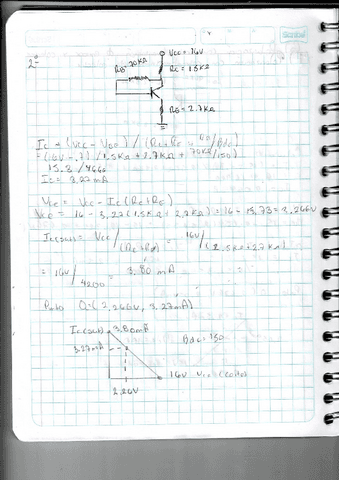 Scribe
2-
Vcc = 16V
RB = 70KΩ
Rc = 1.5KΩ
RE = 2.7KΩ
Ic = (Vcc - VBE) / (Rc + RE +
= (16V - .7) / 1.5KΩ + 2.7KΩ + 70KΩ/150)
15.3 / 4666
Ic = 3.27 mA
VCE = Vcc - Ic(Rc + RE)
VCE = 16 - 3.27(1.5KΩ + 2.7KΩ) = 16 - 13.73 = 2.266V
Ic(sat) = Vcc / (Rc + RE) = 16V / (1.5KΩ + 2.7KΩ)
= 16V / 4200 = 3.80 mA
Punto Q = (2.266V, 3.27mA)
Ic(sat) 3.80mA
3.27mA
Bdc = 150
16V Vce (corte)
2.26V